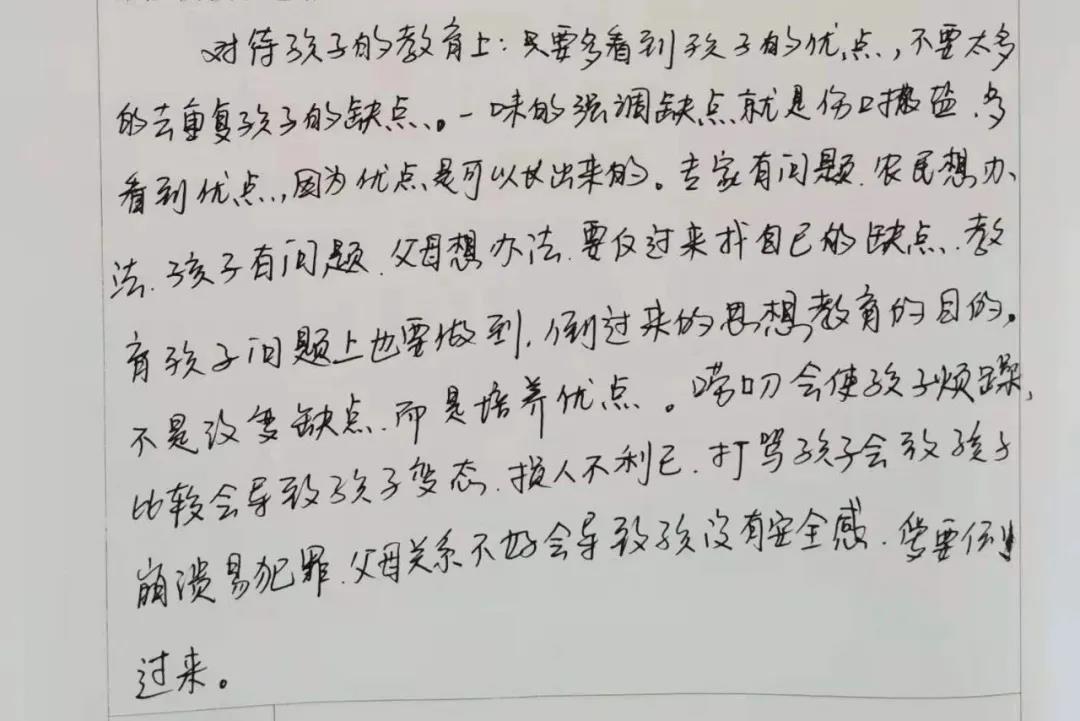 对待孩子的教育上：只要多看到孩子的优点，不要太多
的去重复孩子的缺点。一味的强调缺点就是伤口撒盐.多
看到优点，因为优点是可以长出来的。专家有问题.农民想办
法.孩子有问题.父母想办法.要仅过来找自己的缺点.教
育孩子问题上也要做到.倒过来的思想教育的目的。
不是改变缺点.而是培养优点。唠叨会使孩子烦躁,
比较会导致孩子变态.损人不利己.打骂孩子会致孩子
崩溃易犯罪.父母关系不好会导致孩没有安全感.要倒
过来。